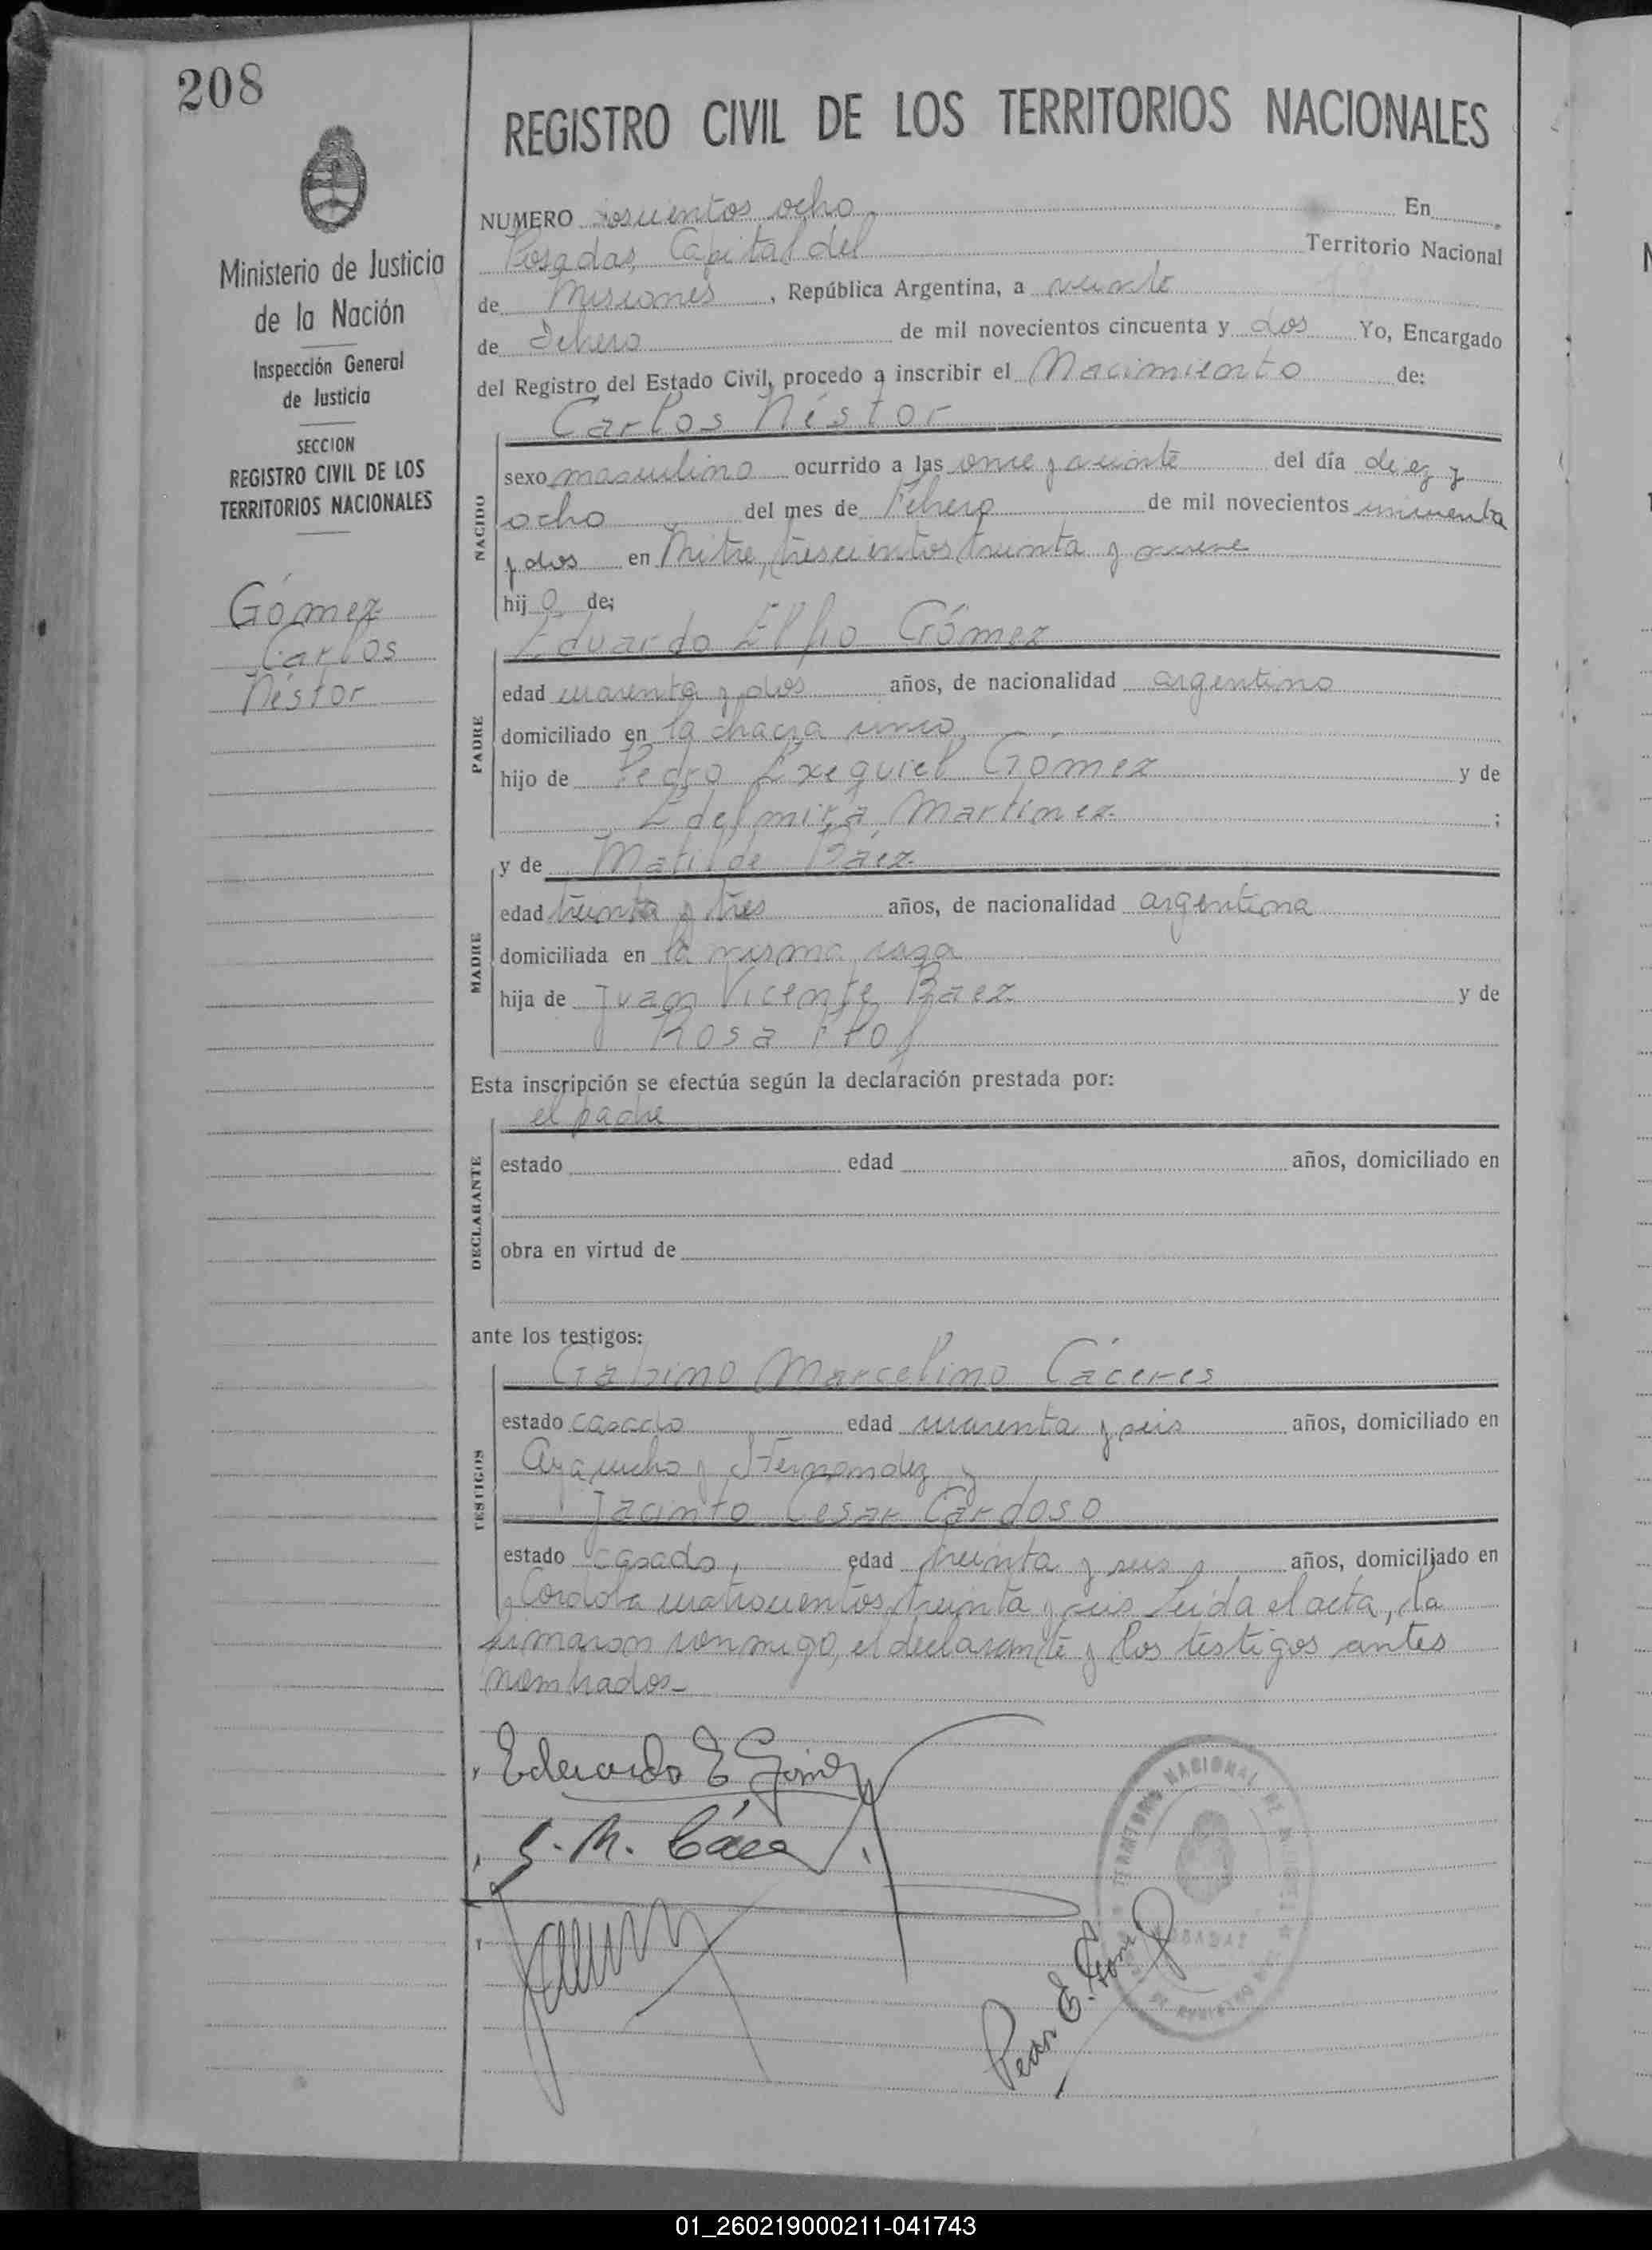 208
REGISTRO CIVIL DE LOS TERRITORIOS NACIONALES
Ministerio de Justicia
de la Nación
Inspección General
de Justicia
SECCION
REGISTRO CIVIL DE LOS
TERRITORIOS NACIONALES
Gómez
Carlos
Néstor
NUMERO doscientos ocho En
Posadas, Capital del Territorio Nacional
de Misiones, República Argentina, a veinte
de Febrero de mil novecientos cincuenta y dos Yo, Encargado
del Registro del Estado Civil, procedo a inscribir el Nacimiento de:
Carlos Néstor
NACIDO
sexo masculino ocurrido a las once y veinte del día diez y
ocho del mes de Febrero de mil novecientos cincuenta
y dos en Mitre, trescientos treinta y nueve
hijo de:
Eduardo Elpio Gómez
PADRE
edad cuarenta y dos años, de nacionalidad argentino
domiciliado en la chacra cinco,
hijo de Pedro Exequiel Gómez y de
Edelmira Martínez ;
y de Matilde Báez
MADRE
edad treinta y tres años, de nacionalidad argentina
domiciliada en la misma casa
hija de Juan Vicente Báez y de
Rosa
Esta inscripción se efectúa según la declaración prestada por:
el padre
DECLARANTE
estado edad años, domiciliado en
obra en virtud de
ante los testigos:
Gabino Marcelino Cáceres
TESTIGOS
estado casado edad cuarenta y seis años, domiciliado en
Ayacucho y Fernandez y
Jacinto Cesar Cardoso
estado casado, edad treinta y seis años, domiciliado en
Cordoba cuatrocientos treinta y seis Leida el acta, la
firmaron conmigo, el declarante y los testigos antes
nombrados-
Eduardo E Gómez
G. M. Cáce
Pedro E. Gómez
TERRITORIO NACIONAL DE MISIONES
POSADAS
01_260219000211-041743